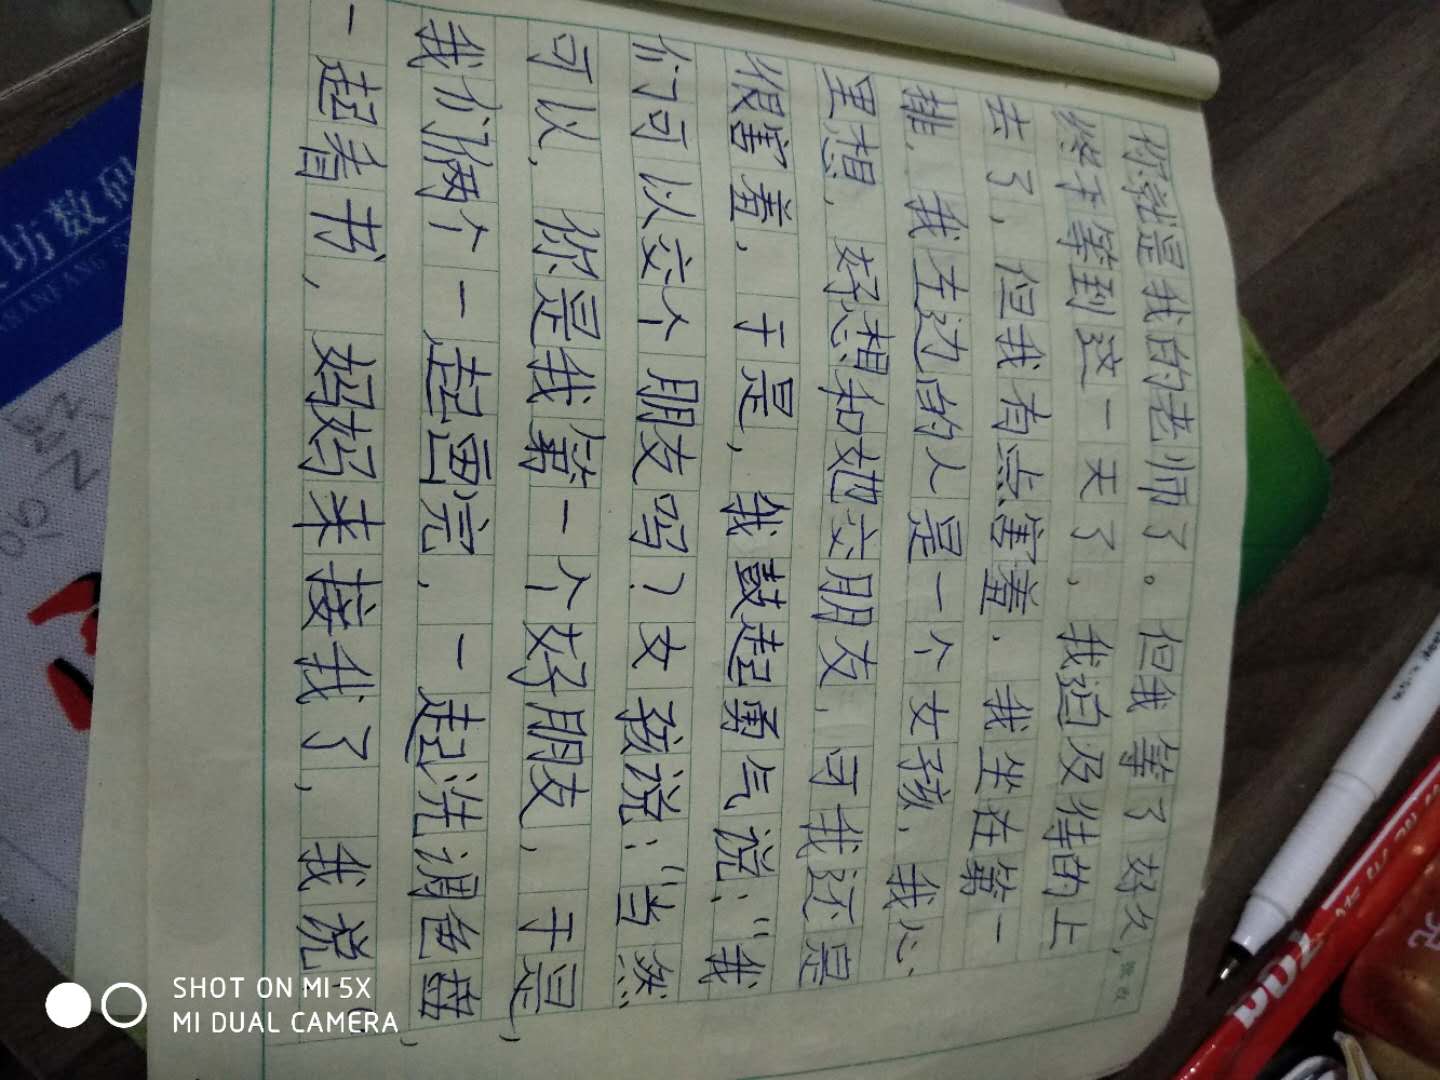 你就是我的老师了。但我等了好久,
终于等到这一天了,我迫及待的上
去了,但我有点害羞,我坐在第一
排,我左边的人是一个女孩,我心
里想,好想和她交朋友,可我还是
很害羞,于是,我鼓起勇气说:“我
们可以交个朋友吗?女孩说:“当然
可以,你是我第一个好朋友,于是,
我们俩个一起画完,一起洗调色盘,
一起看书,妈妈来接我了,我说
SHOT ON MI 5X
MI DUAL CAMERA